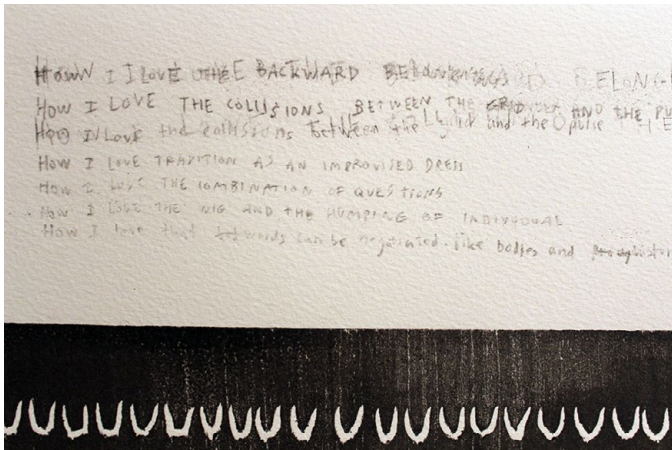 How I LOVE THE BACKWARD BELONG
HOW I LOVE THE COLLISIONS BETWEEN THE AND THE PU
How I Love the collisions between the grid and the pulse
HOW I LOVE TRADITION AS AN IMPROVISED DRESS
HOW I LOVE THE COMBINATION OF QUESTIONS
HOW I LOVE THE AND THE HUMPING OF INDIVIDUAL
How I love that words can be negotiated like bodies and